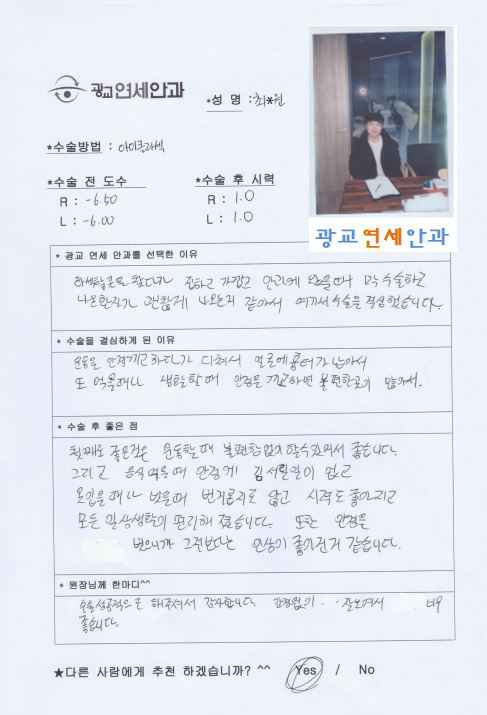 광교연세안과
*성 명 : 최*원
*수술방법 : 아이큐라섹
*수술 전 도수
R : -6.50
L : -6.00
*수술 후 시력
R : 1.0
L : 1.0
광교 연세 안과
* 광교 연세 안과를 선택한 이유
집하고 가깝고 안과에 왔을때 막 수술하고
나온환자가 괜찮게 나오는거 같아서 여기서 수술을 결심했습니다.
* 수술을 결심하게 된 이유
운동을 안경끼고하다가 다쳐서 얼굴에 흉터가 남아서
또 먹을때나 생활할때 안경을 끼고하면 불편한곳이 많아서.
* 수술 후 좋은 점
첫째로 좋은것은 운동할때 불편함없이 할수있어서 좋습니다.
그리고 음식먹을때 안경에 김서림이 없고
옷입을때나 벗을때 번거롭지도 않고 시력도 좋아지고
모든 일상생활이 편리해 졌습니다. 또한 안경을
벗으니까 그전보다는 인상이 좋아진거 같습니다.
* 원장님께 한마디^^
수술성공적으로 해주셔서 감사합니다. 안경없이 잘보여서 너무
좋습니다.
★다른 사람에게 추천 하겠습니까? ^^ Yes / No